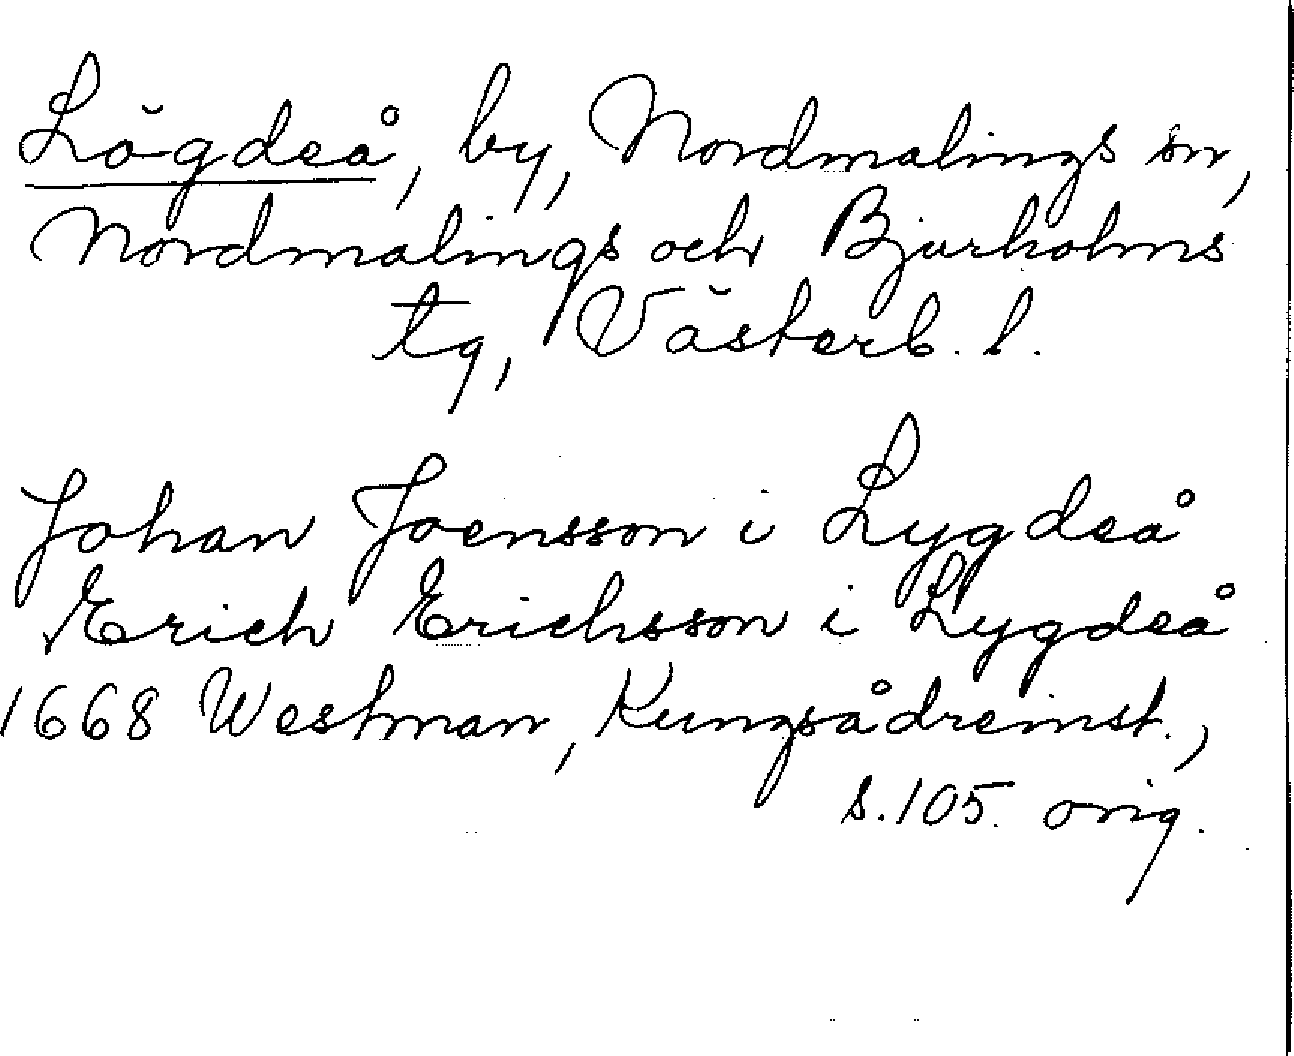 Lögdeå, by, Nordmalings sn,
Nordmalings och Bjurholms
tg, Västerb. l.
Johan Joensson i Lygdeå
Erich Erichsson i Lygdeå
1668 Westman, Kungsådreinst.,
s. 105. orig.